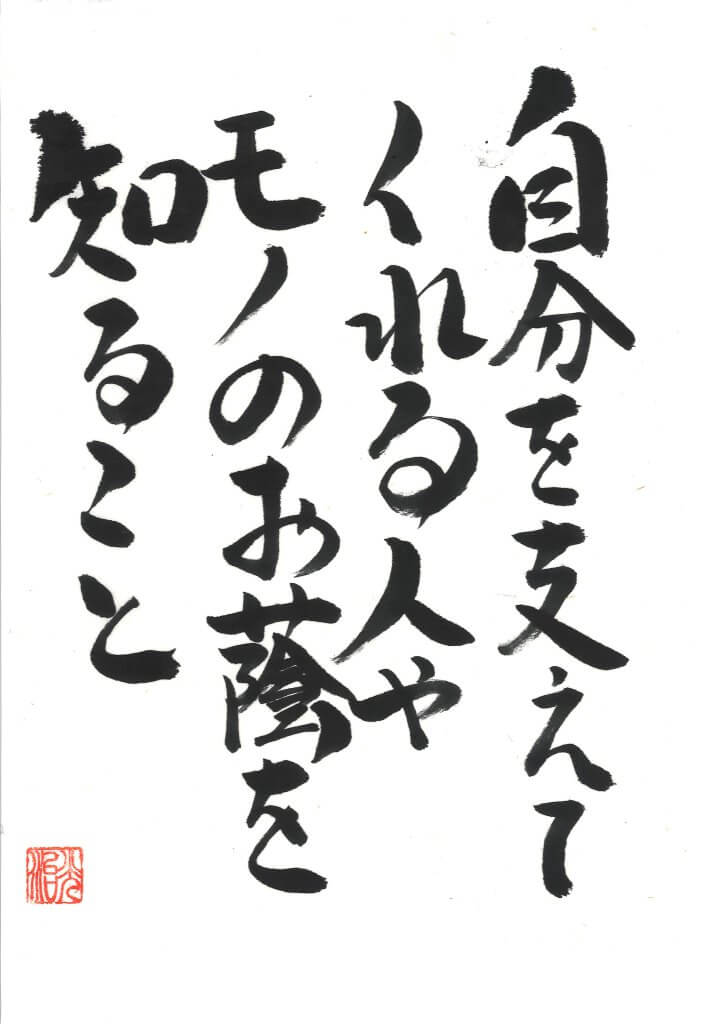 自分を支えて
くれる人や
モノのお蔭を
知ること